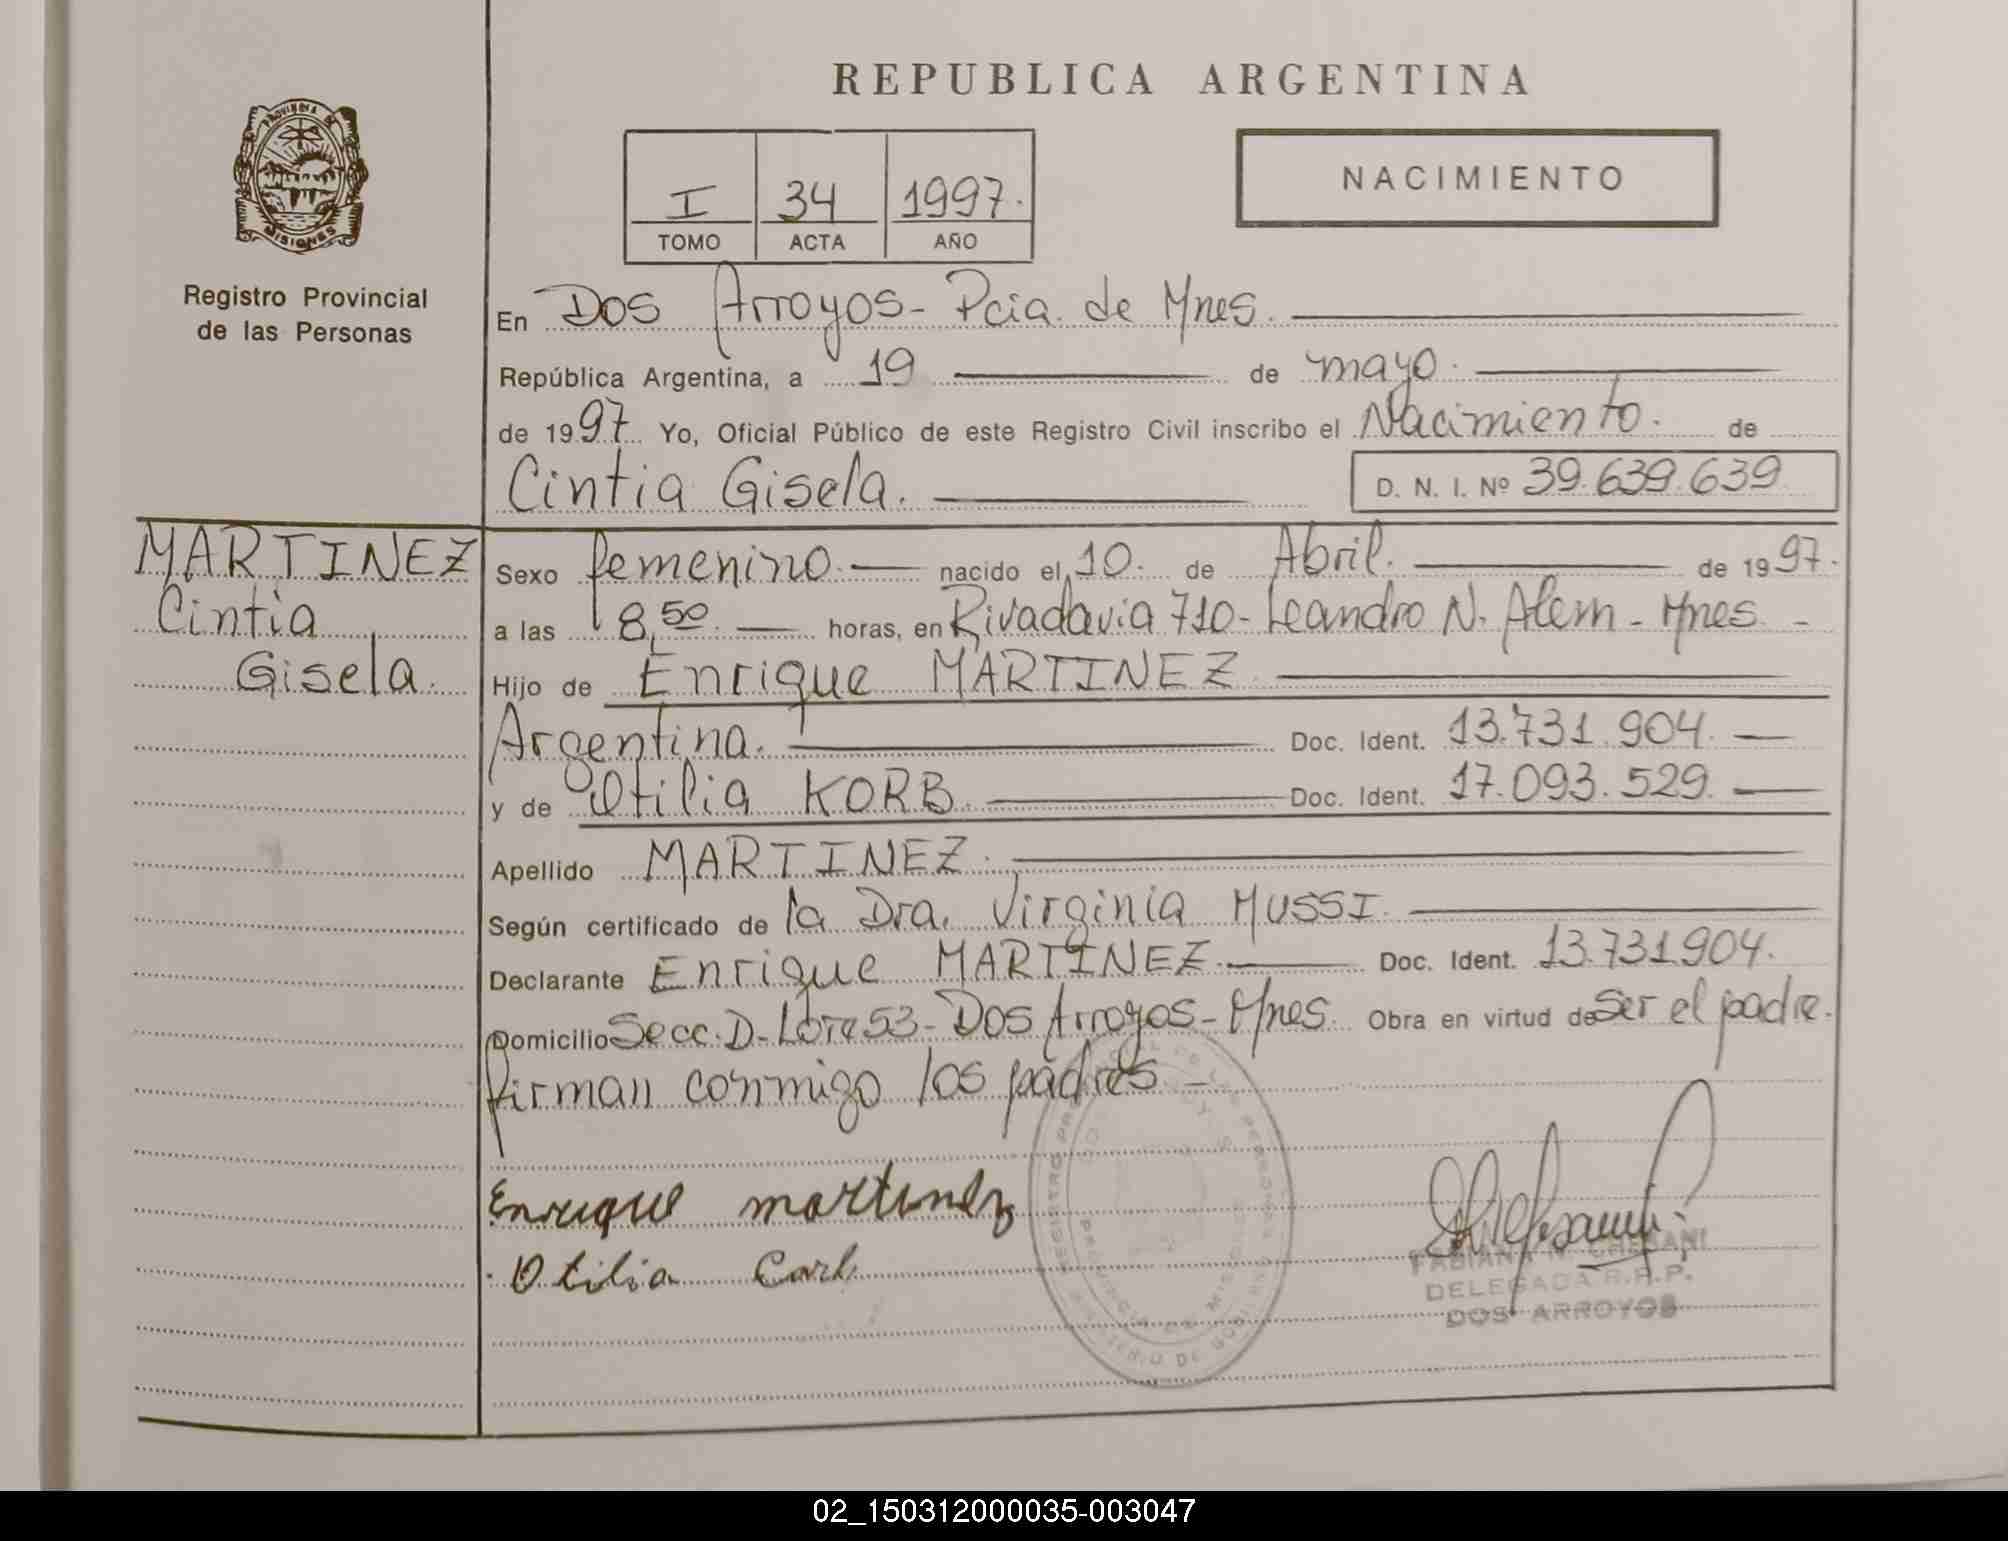 REPUBLICA ARGENTINA
PROVINCIA DE
MISIONES
Registro Provincial
de las Personas
I 34 1997.
TOMO ACTA AÑO
NACIMIENTO
En Dos Arroyos - Pcia. de Mnes.
República Argentina, a 19 de mayo.
de 1997. Yo, Oficial Público de este Registro Civil inscribo el Nacimiento. de
Cintia Gisela. D. N. I. Nº 39.639.639
MARTINEZ
Cintia
Gisela.
Sexo femenino. nacido el 10. de Abril. de 1997.
a las 8,50 horas, en Rivadavia 710 - Leandro N. Alem - Mnes -
Hijo de Enrique MARTINEZ
Argentina. Doc. Ident. 13.731.904.
y de Otilia KORB Doc. Ident. 17.093.529.
Apellido MARTINEZ.
Según certificado de la Dra. Virginia MUSSI.
Declarante Enrique MARTINEZ. Doc. Ident. 13.731.904.
Domicilio Secc. D - Lote 53 - Dos Arroyos - Mnes. Obra en virtud de Ser el padre.
firman conmigo los padres -
Enrique martinez
Otilia Corb
DELEGADA R.P.P.
DOS ARROYOS
02_150312000035-003047